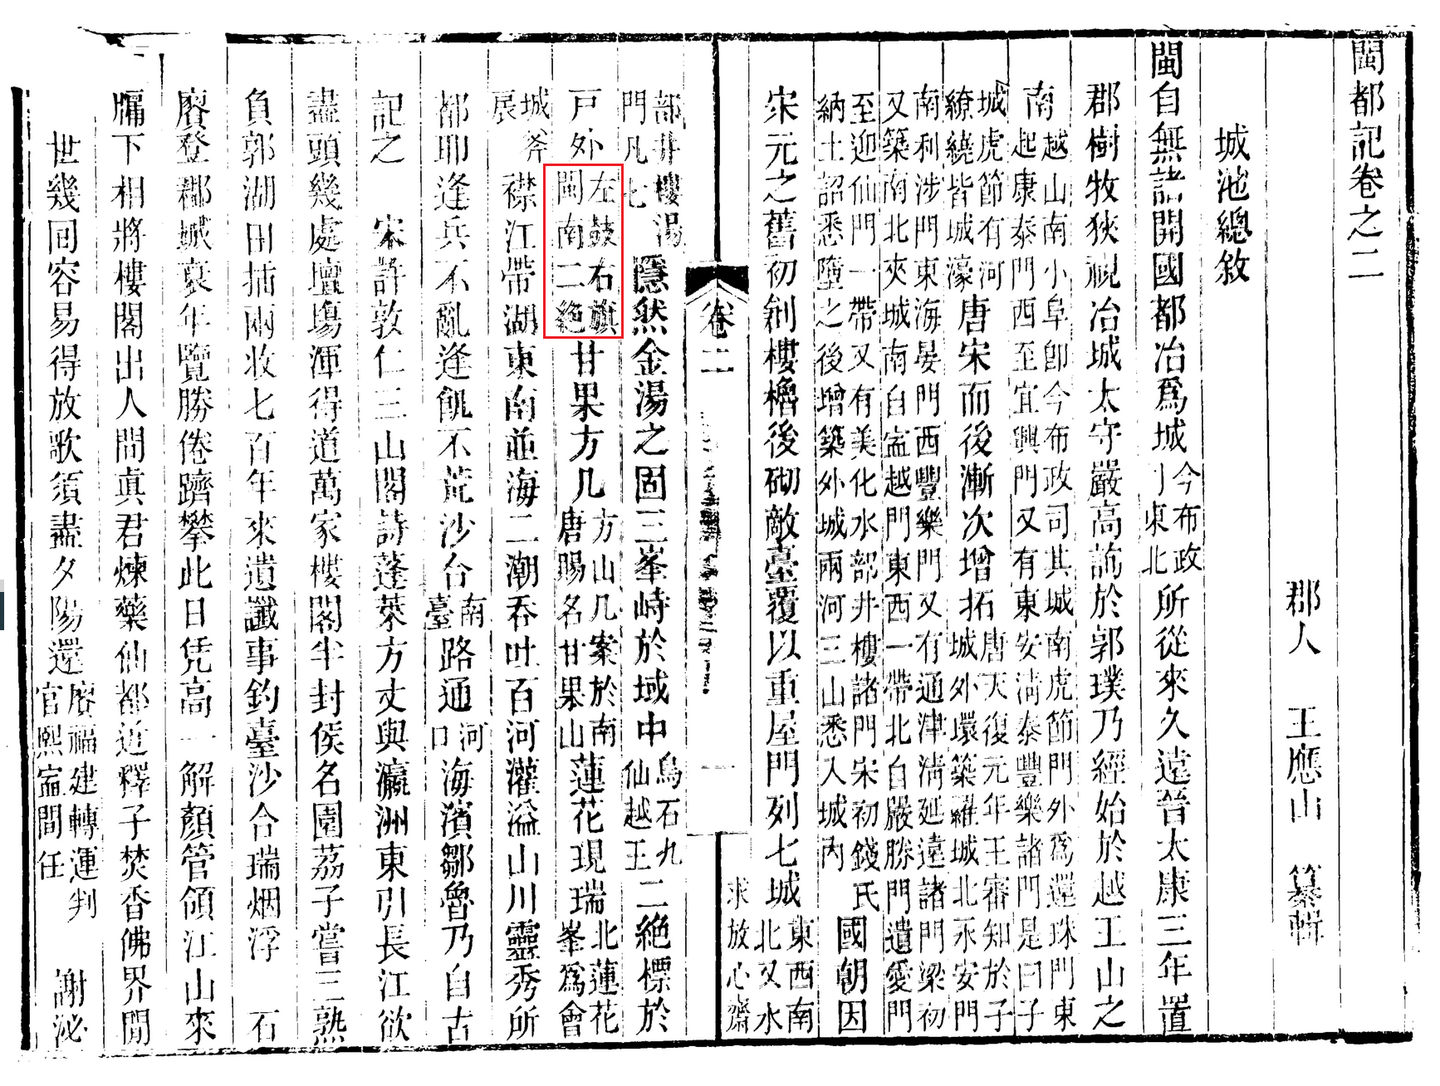 閩都記卷之二
郡人　王應山　纂輯
城池總敘
閩自無諸開國都冶爲城今布政司東北所從來久遠晉太康三年置
郡樹牧狹視冶城太守嚴高諮於郭璞乃經始於越王山之
南越山南小阜卽今布政司其城南虎節門外爲還珠門東
起康泰門西至宜興門又有東安淸泰豐樂諸門是曰子
城虎節有河繚繞皆城濠唐宋而後漸次增拓唐天復元年王審知於子城外環築羅城北永安門
南利涉門東海晏門西豐樂門又有通津淸延遠諸門梁初
又築南北夾城南自寍越門東西一帶北自嚴勝門遺愛門
至迎仙門一帶又有美化水部井樓諸門宋初錢氏
納土詔悉墮之後增築外城兩河三山悉入城內
國朝因
宋元之舊初創樓櫓後砌敵臺覆以重屋門列七城東西南北又水
求放心齋
卷二
一
部井樓湯門凡七隱然金湯之固三峯峙於域中烏石九仙越王二絕標於
戶外左鼓右旗閩南二絕甘果方几方山几案於南唐賜名甘果山蓮花現瑞北蓮花峯爲會
城斧扆襟江帶湖東南並海二潮吞吐百河灌溢山川靈秀所
都耶逢兵不亂逢飢不荒沙合南臺路通河口海濱鄒魯乃自古
記之　宋許敦仁三山閣詩蓬萊方丈與瀛洲東引長江欲
盡頭幾處壇塲渾得道萬家樓閣半封侯名園荔子嘗三熟
負郭湖田插兩收七百年來遺讖事釣臺沙合瑞烟浮　石
麐登郡城衰年覽勝倦躋攀此日凭高一解顏管領江山來
牖下相將樓閣出人間眞君煉藥仙都近釋子焚香佛界閒
世幾回容易得放歌須盡夕陽還麐福建轉運判官熙寍間任　謝泌